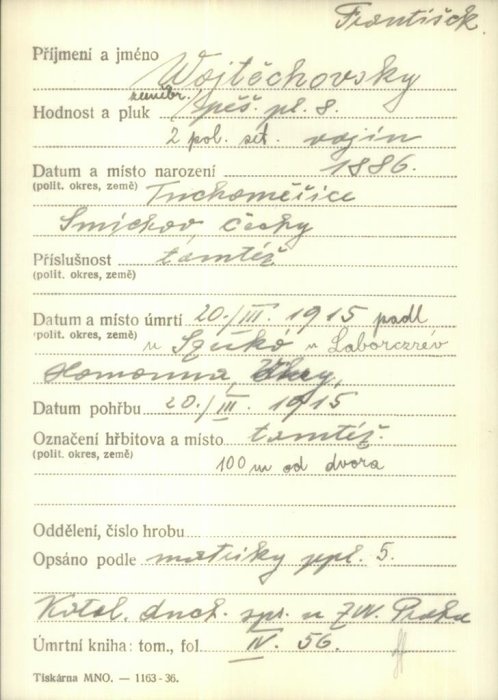 František
Příjmení a jméno Wojtěchovsky
zeměbr.
Hodnost a pluk pěš. pl. 8.
2 pol. set. vojín
Datum a místo narození 1886.
(polit. okres, země) Tuchoměřice
Smíchov Čechy
Příslušnost tamtéž
(polit. okres, země)
Datum a místo úmrtí 20./III. 1915 padl
(polit. okres, země) u Szukó u Laborczrév
Homonna,
Datum pohřbu 20./III. 1915
Označení hřbitova a místo tamtéž.
(polit. okres, země)
100 m od dvora
Oddělení, číslo hrobu
Opsáno podle matriky ppl. 5.
Katol. duch. spr. u ZVV. Praha
Úmrtní kniha: tom., fol. IV. 56.
Tiskárna MNO. — 1163-36.